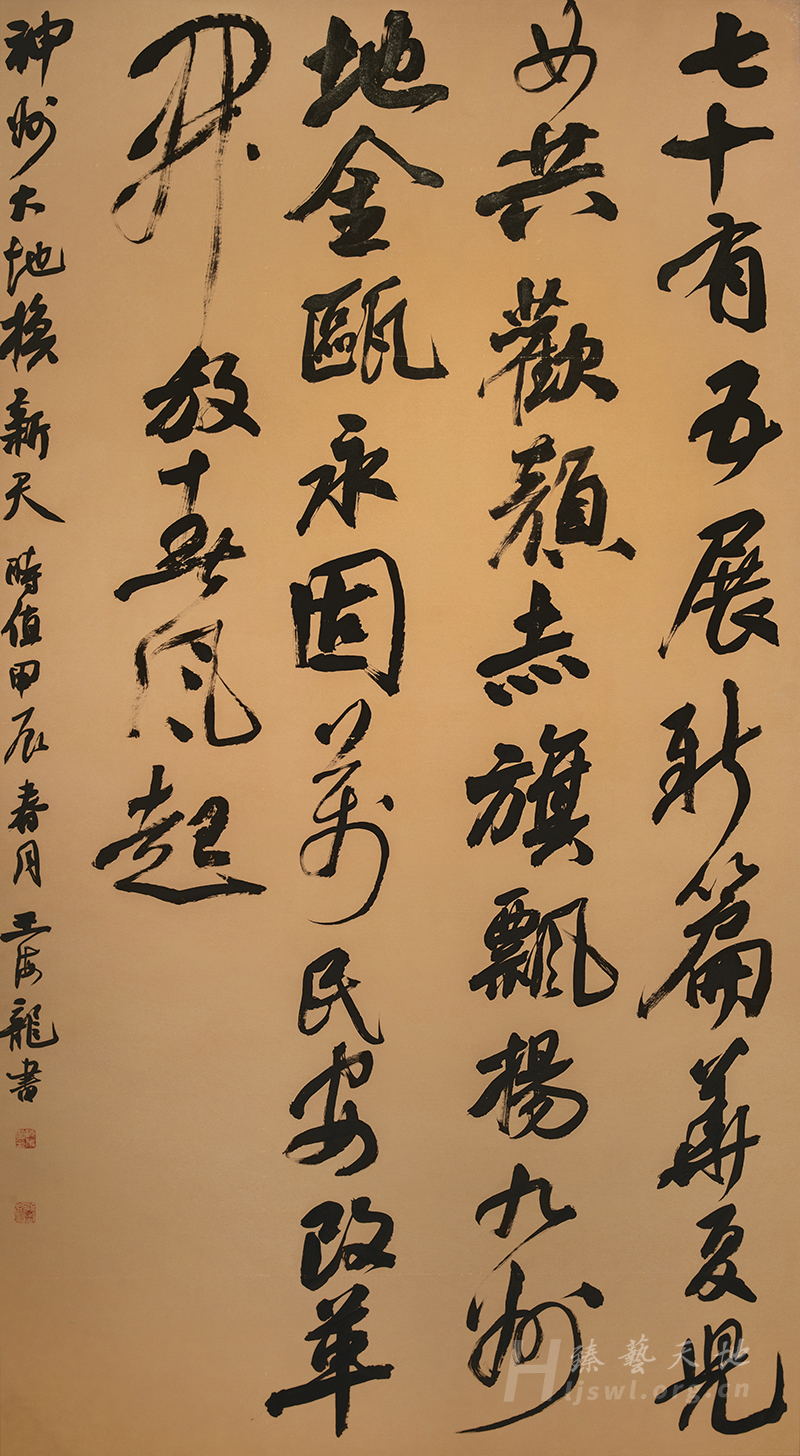 七十有五展新篇華夏兒
女共歡顏赤旗飄揚九州
地金甌永固萬民安改革
開放春風起
神州大地換新天時值甲辰春月王海龍書
臻藝天地
Hljswl.org.cn